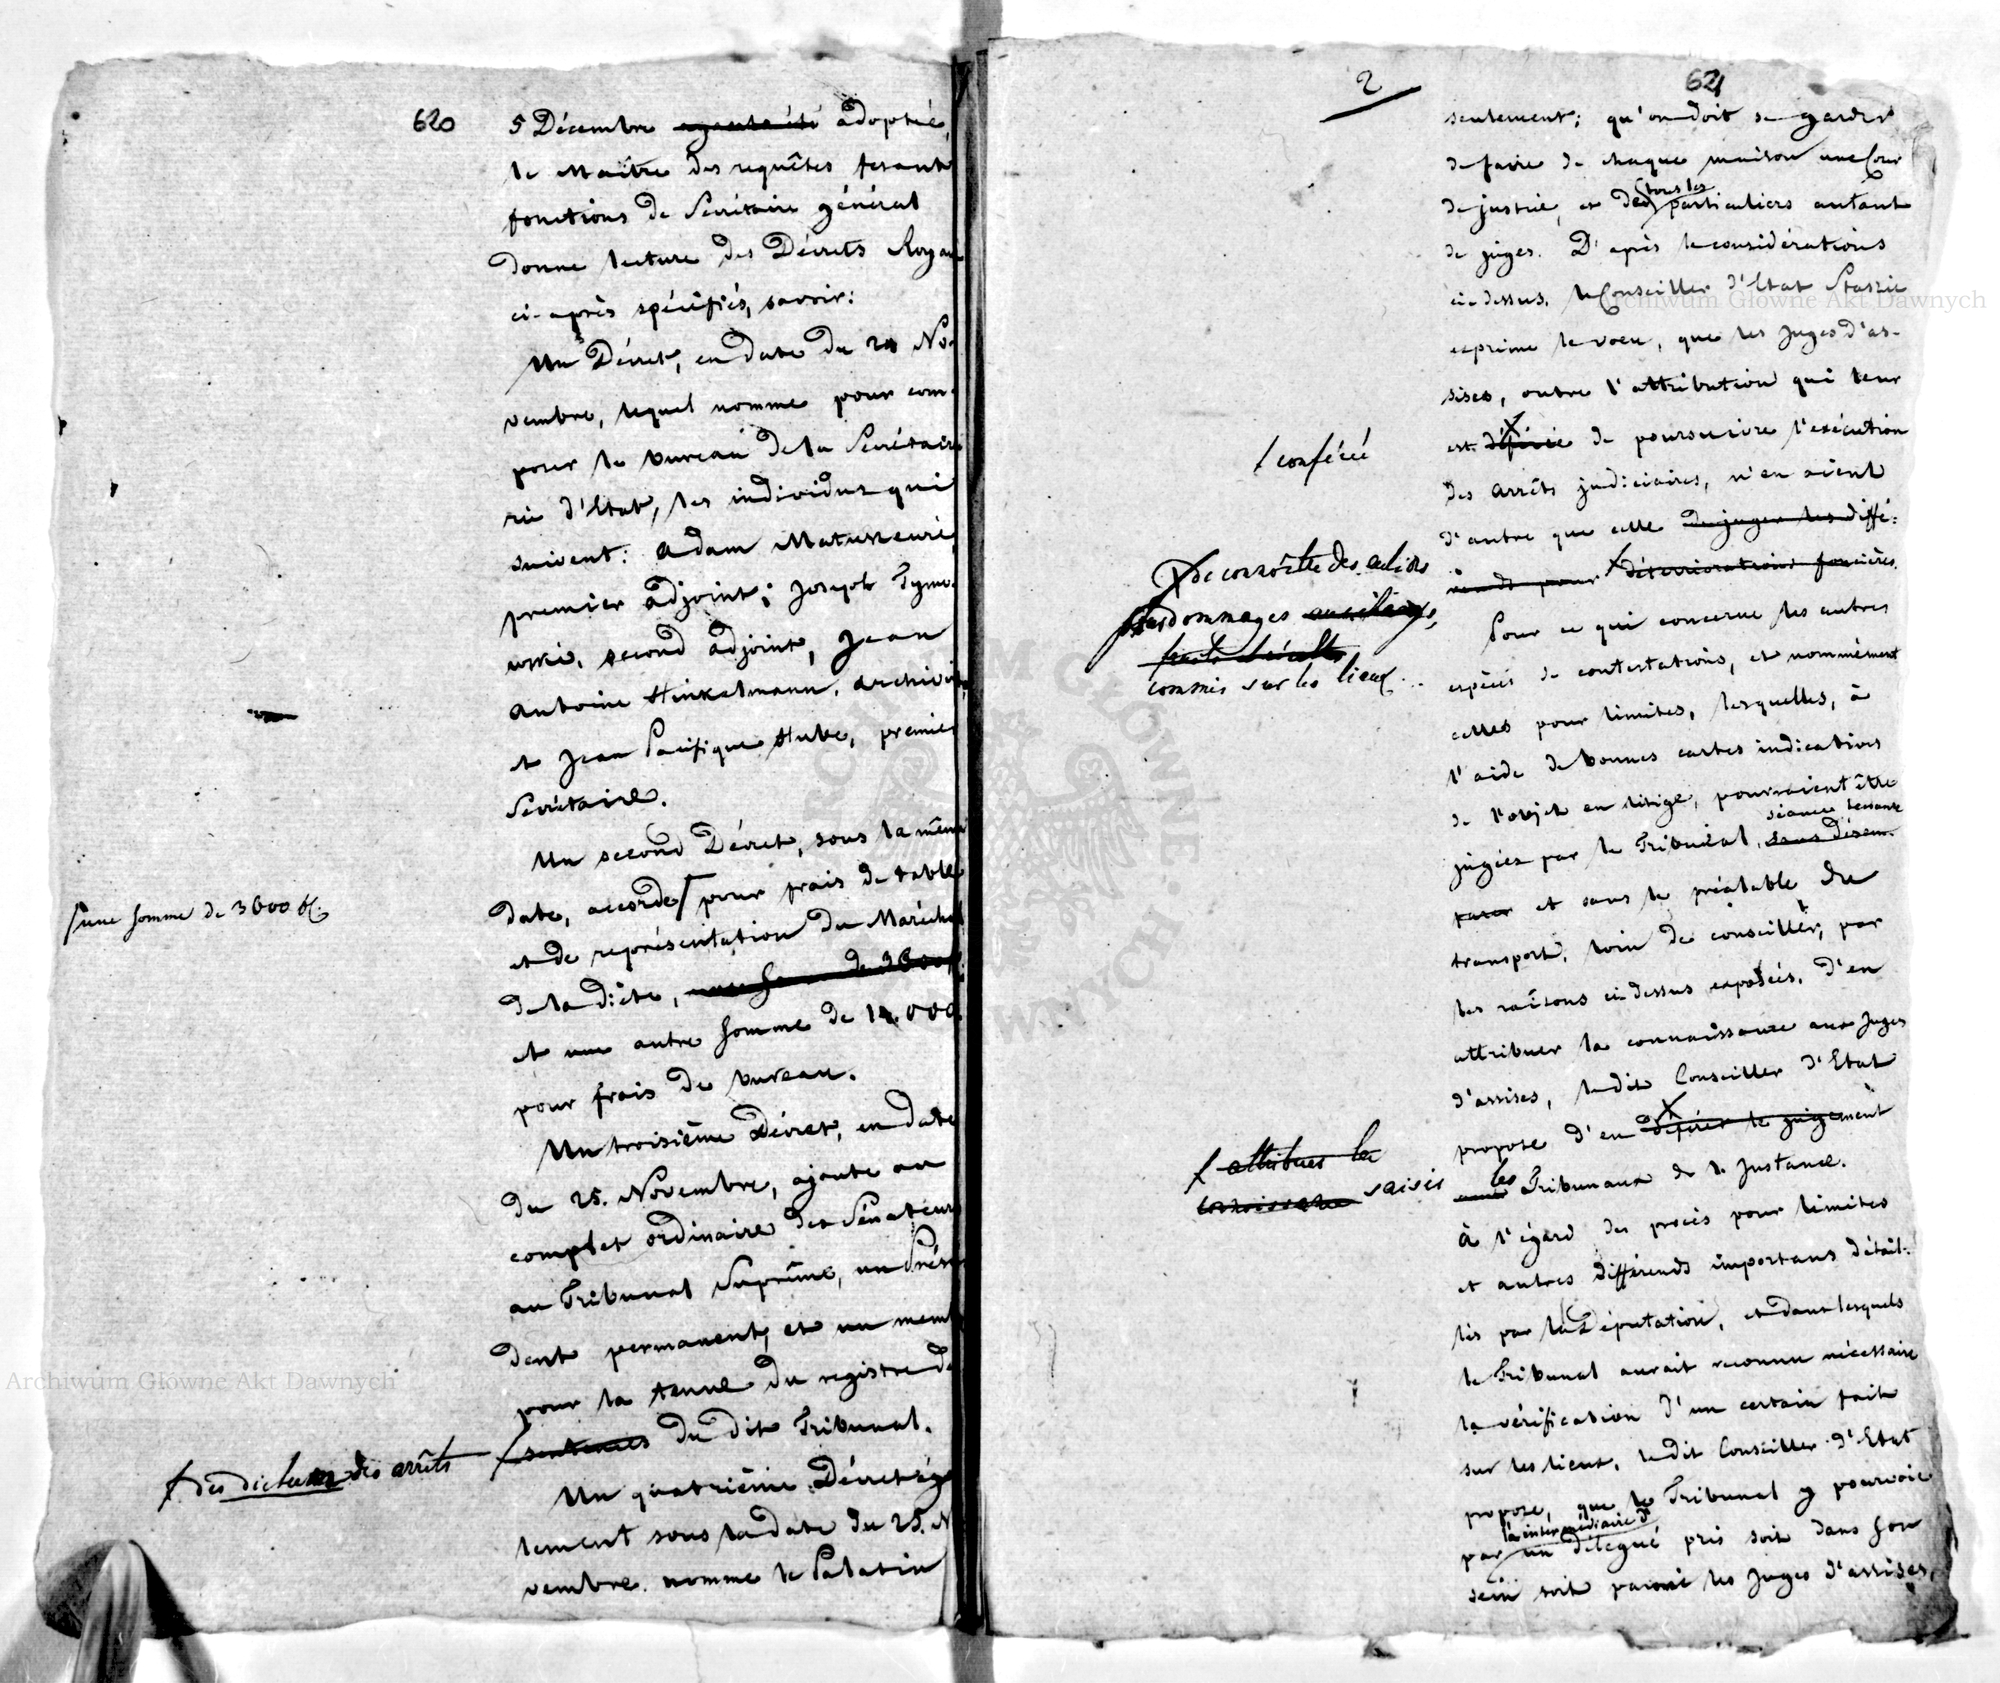 620
5 Décembre ayant été adopté,
le Maître des requêtes fesant
fonctions de Secrétaire général
donne lecture des Décrets Royau
ci-après spécifiés, savoir:
Un Décret, en date du No-
vembre, lequel nomme pour com-
poser le bureau de la Secrétaire
rie d'Etat, les individus qui
suivent: Adam
premier adjoint; Joseph Tymo
wski, second adjoint, Jean
Antoine Hinkelmann, archivis
et Jean Pacifique Hube, premier
Secrétaire.
Un second Décret, sous la mêm
date, accorde pour frais de table
une somme de 3600 fl.
et de représentation du Maréchal
de la diète, une somme de 3600 f
et une autre somme de 000
pour frais de bureau.
Un troisième Décret, en date
du 25. Novembre, ajoute au
complet ordinaire des Sénateurs
au Tribunal Suprême, un Prési
dent permanent, et un memb
pour la tenue du registre de
sentences du dit Tribunal.
des arrêts
Un quatrième Décret ég
lement sous la date du 25. N
vembre nomme le Palatin
2
621
seulement; qu'on doit se garder
de faire de chaque maison une Cour
de justice, et des particuliers autant
tous les
de juges. D'après le considérations
ci-dessus, le Conseiller d'Etat Stasic
exprime le voeu, que les Juges d'as-
sises, outre l'attribution qui leur
est déférée de poursuivre l'exécution
conféré
des arrêts judiciaires, n'en aient
d'autre que celle de juger les diffé-
rends pour déteriorations foncières.
de connoître des
dommages
commis sur les lieux
Pour ce qui concerne les autres
espèces de contestations, et nommément
celles pour limites, lesquelles, à
l'aide de bonnes cartes indicatives
de l'objet en litige, pourraient être
séance tenante
jugées par le Tribunal, sans désem-
parer et sans le préalable du
transport, loin de conseiller, par
les raisons ci-dessus exposées, d'en
attribuer la connaissance aux Juges
d'assises, ledit Conseiller d'Etat
propose d'en déférer le jugement
attribuer la
connoissance saisir
les Tribunaux de 1. Instance.
à l'égard des procès pour limites
et autres différends importans détail-
lés par la Députation, et dans lesquels
le Tribunal aurait reconnu nécessaire
la vérification d'un certain fait
sur les lieux, ledit Conseiller d'Etat
propose, que le Tribunal y pourvoie
l'intermédiaire d'
par un délégué pris soit dans son
sein soit parmi les Juges d'assises,
Archiwum Główne Akt Dawnych
Archiwum Główne Akt Dawnych